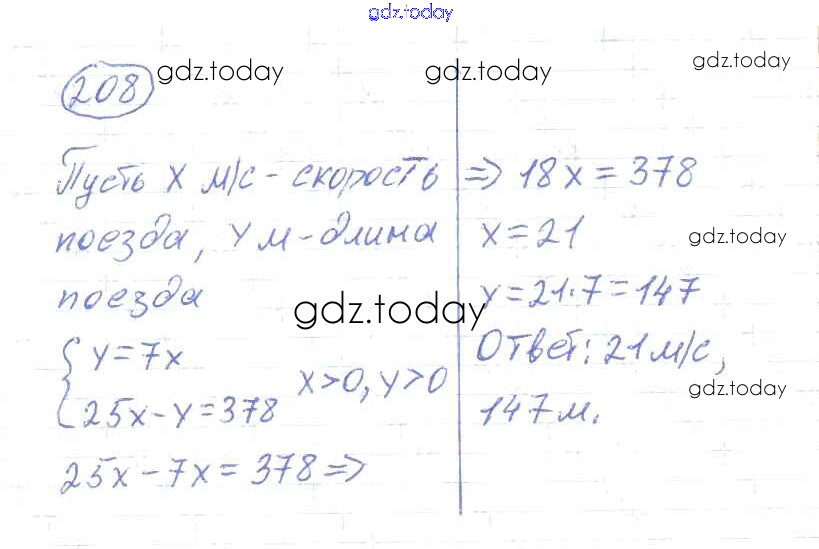 gdz.today
gdz.today
gdz.today
gdz.today
208
Пусть x м/с - скорость
поезда, y м - длина
поезда
gdz.today
y = 7x
25x - y = 378
x > 0, y > 0
25x - 7x = 378 =>
=> 18x = 378
x = 21
gdz.today
y = 21·7 = 147
Ответ: 21 м/с,
gdz.today
147 м.